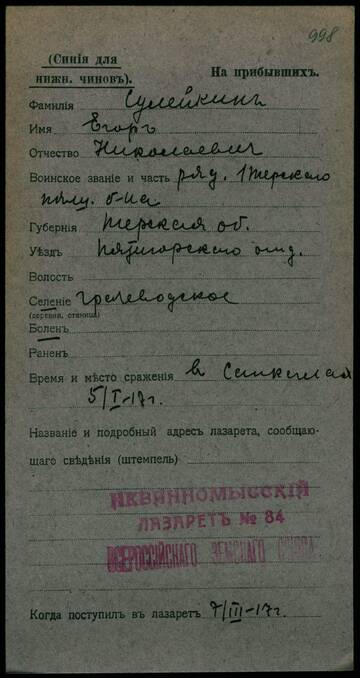 998
(Синія для
нижн. чиновъ).
На прибывшихъ.
Фамилія Сулейкинъ
Имя Егоръ
Отчество Николаевич
Воинское званіе и часть ряд. 1 Терскаго
б-на
Губернія Терская об.
Уѣздъ Пятигорскаго отд.
Волость
Селеніе
(деревня, станица)
Боленъ
Раненъ
Время и мѣсто сраженія в
5/I-17 г.
Названіе и подробный адресъ лазарета, сообщаю-
щаго свѣдѣнія (штемпель)
НЕВИННОМЫССКІЙ
ЛАЗАРЕТЪ № 84
ВСЕРОССІЙСКАГО ЗЕМСКАГО СОЮЗА
Когда поступилъ въ лазаретъ 7/III-17 г.